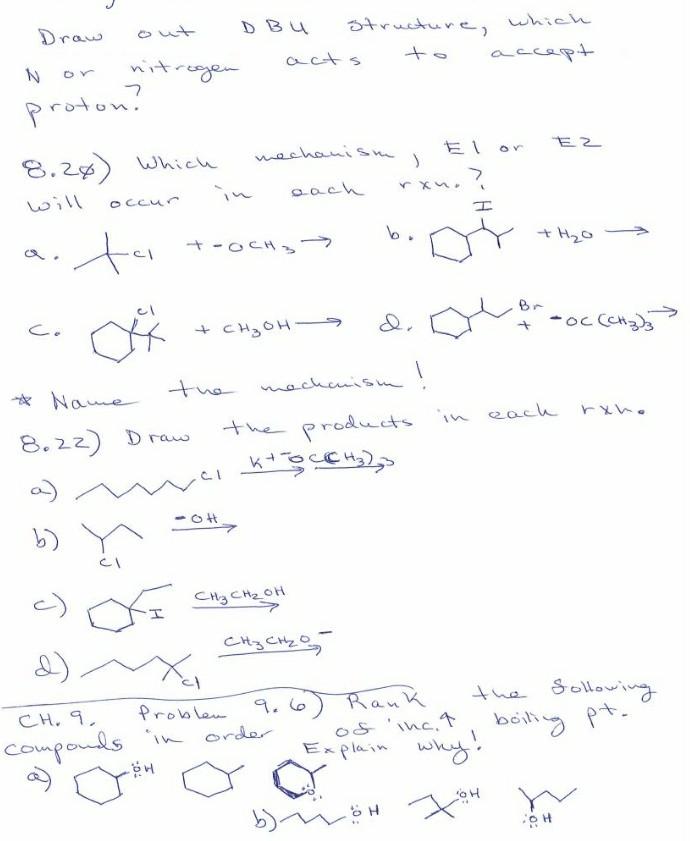 Draw out DBU structure, which
N or nitrogen acts to accept
proton?
8.20) Which mechanism, E1 or E2
will occur in each rxn.?
a. Cl + -OCH3 →
b. I + H2O →
c. Cl + CH3OH →
d. Br + -OC(CH3)3 →
* Name the mechanism!
8.22) Draw the products in each rxn.
a) Cl K+ -OC(CH3)3
b) Cl -OH
c) I CH3CH2OH
d) Cl CH3CH2O-
CH. 9. Problem 9.6) Rank the following
compounds in order of inc. ↑ boiling pt.
Explain why!
a) ÖH
b) ÖH ÖH :ÖH